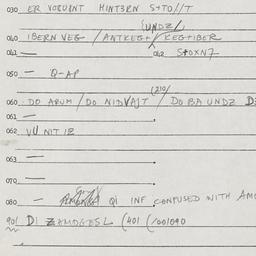 030 ER VOBURNT HINT3RN S+TO//T
(UNDZ/)
040 IBERN VEG / ANTKEG+ / KEG+IBER
041 — 042 S+OXN7
050 — Q-AP
(210/
060 DO ARUM / DO NIDVAJT / DO BA UNDZ D
061 —
062 VU NIT IZ
063 —
070 —
080 — QI INF CONFUSED WITH AM
901 DI ZAMDGESL (401 (/001090